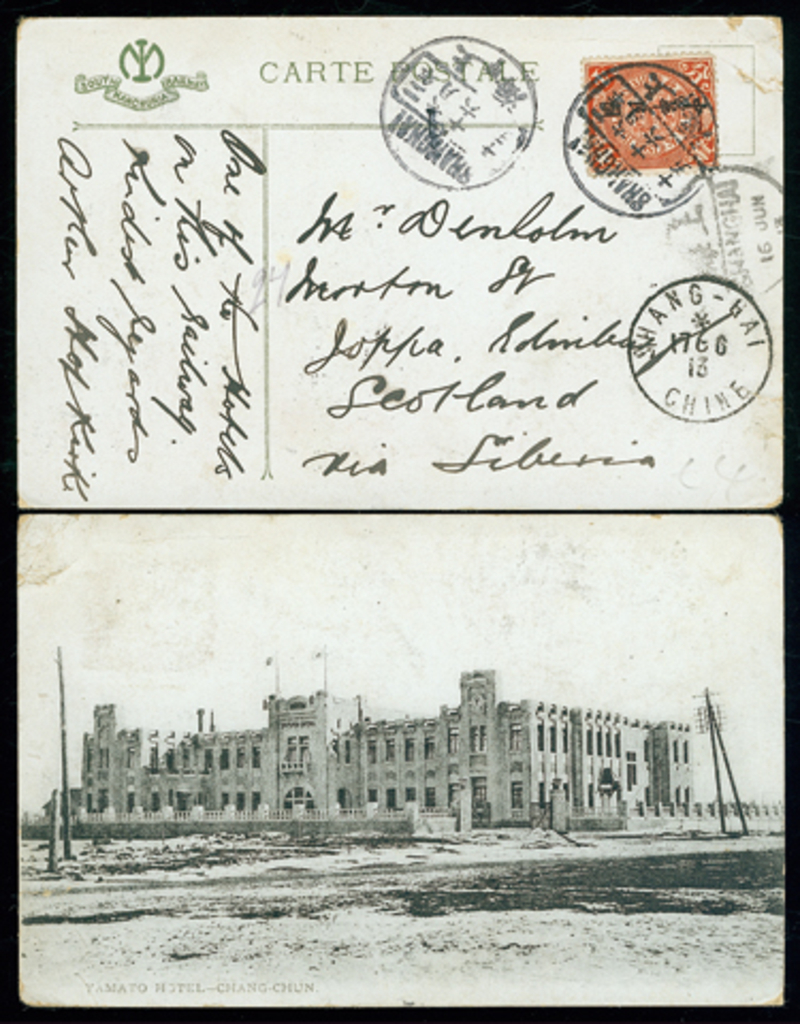 SOUTH MANCHURIA RAILWAY
CARTE POSTALE
SHANGHAI
SHANGHAI
16 JUN
SHANG-HAI
13
CHINE
One of the Hotels
on this railway.
Kindest Regards
Arthur
Mr Denholm
Morton St
Joppa, Edinbu
Scotland
via Siberia
YAMATO HOTEL—CHANG-CHUN.